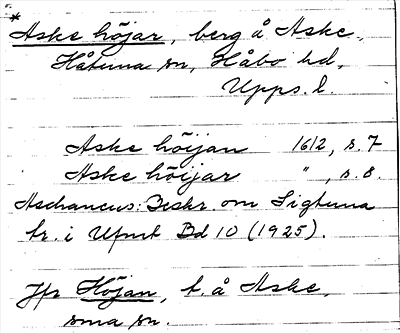 *Aske höjar, berg å Aske,
Håtuna sn, Håbo hd,
Upps. l.
Aske höijan 1612, s. 7
Aske höijar " , s. 8.
Aschaneus: Beskr. om Sigtuna
tr. i Upmt Bd 10 (1925).
Jfr Höjan, t. å Aske,
sma sn.